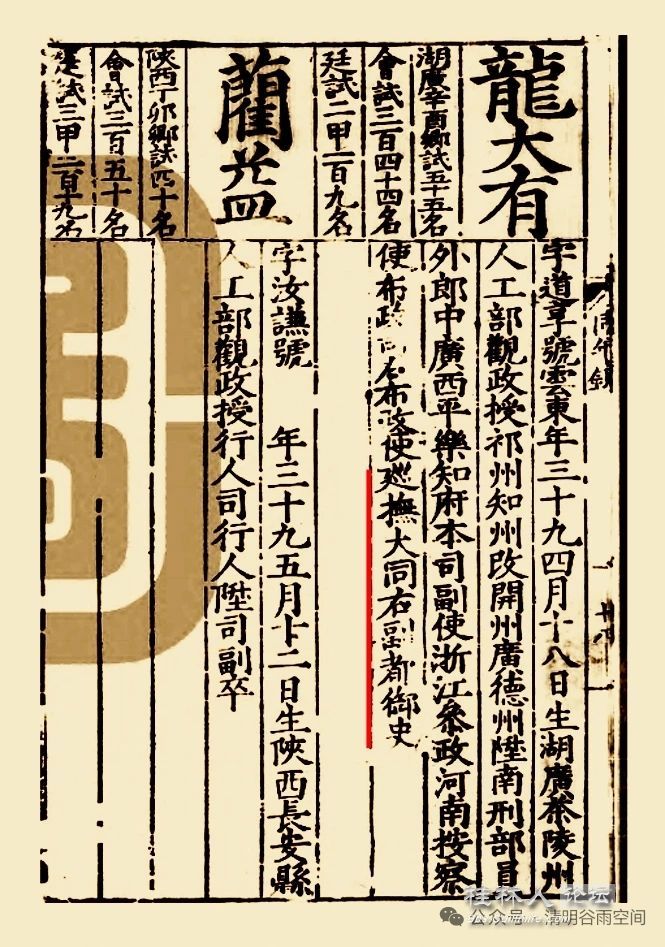 龍大有
湖廣辛酉鄉試五十五名
會試三百四十四名
廷試二甲一百九名
字道亨號雲東年三十九四月十八日生湖廣茶陵州
人工部觀政授祁州知州改開州廣德州陞南刑部員
外郎中廣西平樂知府本司副使浙江參政河南按察
使布政司左布政使廵撫大同右副都御史
藺
陝西丁卯鄉試四十名
會試三百五十名
廷試三甲二百十九名
字汝謙號 年三十九五月十二日生陝西長安縣
人工部觀政授行人司行人陞司副卒
同年錄
桂林人论坛
公众号 · 清明谷雨空间